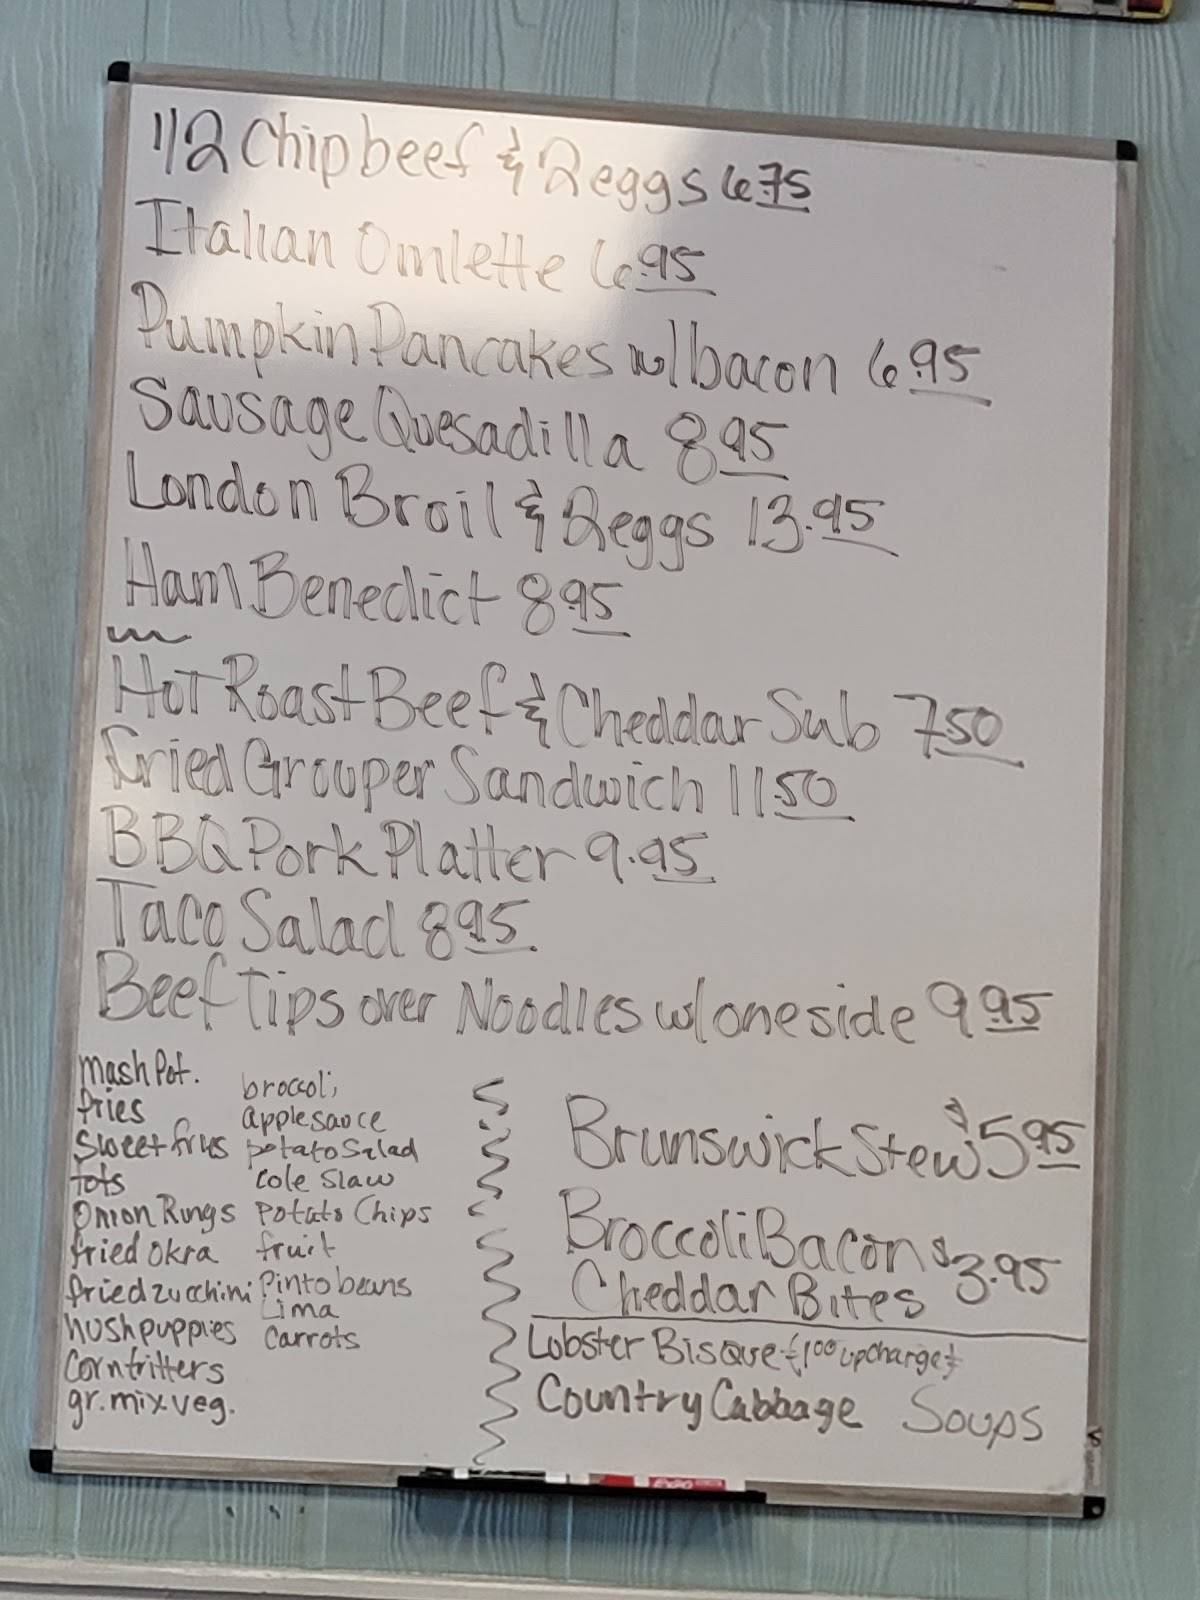 1/2 Chipbeef & 2 eggs 6.75
Italian Omlette 6.95
Pumpkin Pancakes w/bacon 6.95
Sausage Quesadilla 8.95
London Broil & 2 eggs 13.95
Ham Benedict 8.95
Hot Roast Beef & Cheddar Sub 7.50
Fried Grouper Sandwich 11.50
BBQ Pork Platter 9.95
Taco Salad 8.95
Beef Tips over Noodles w/one side 9.95
Mash Pot.
fries
Sweet fries
tots
Onion Rings
fried okra
fried zucchini
hushpuppies
Corn fritters
gr. mix veg.
broccoli
applesauce
potato Salad
Cole Slaw
Potato Chips
fruit
Pinto beans
Lima
Carrots
Brunswick Stew $5.95
Broccoli Bacon $3.95
Cheddar Bites
Lobster Bisque {1.00 upcharge}
Country Cabbage Soups
EXPO